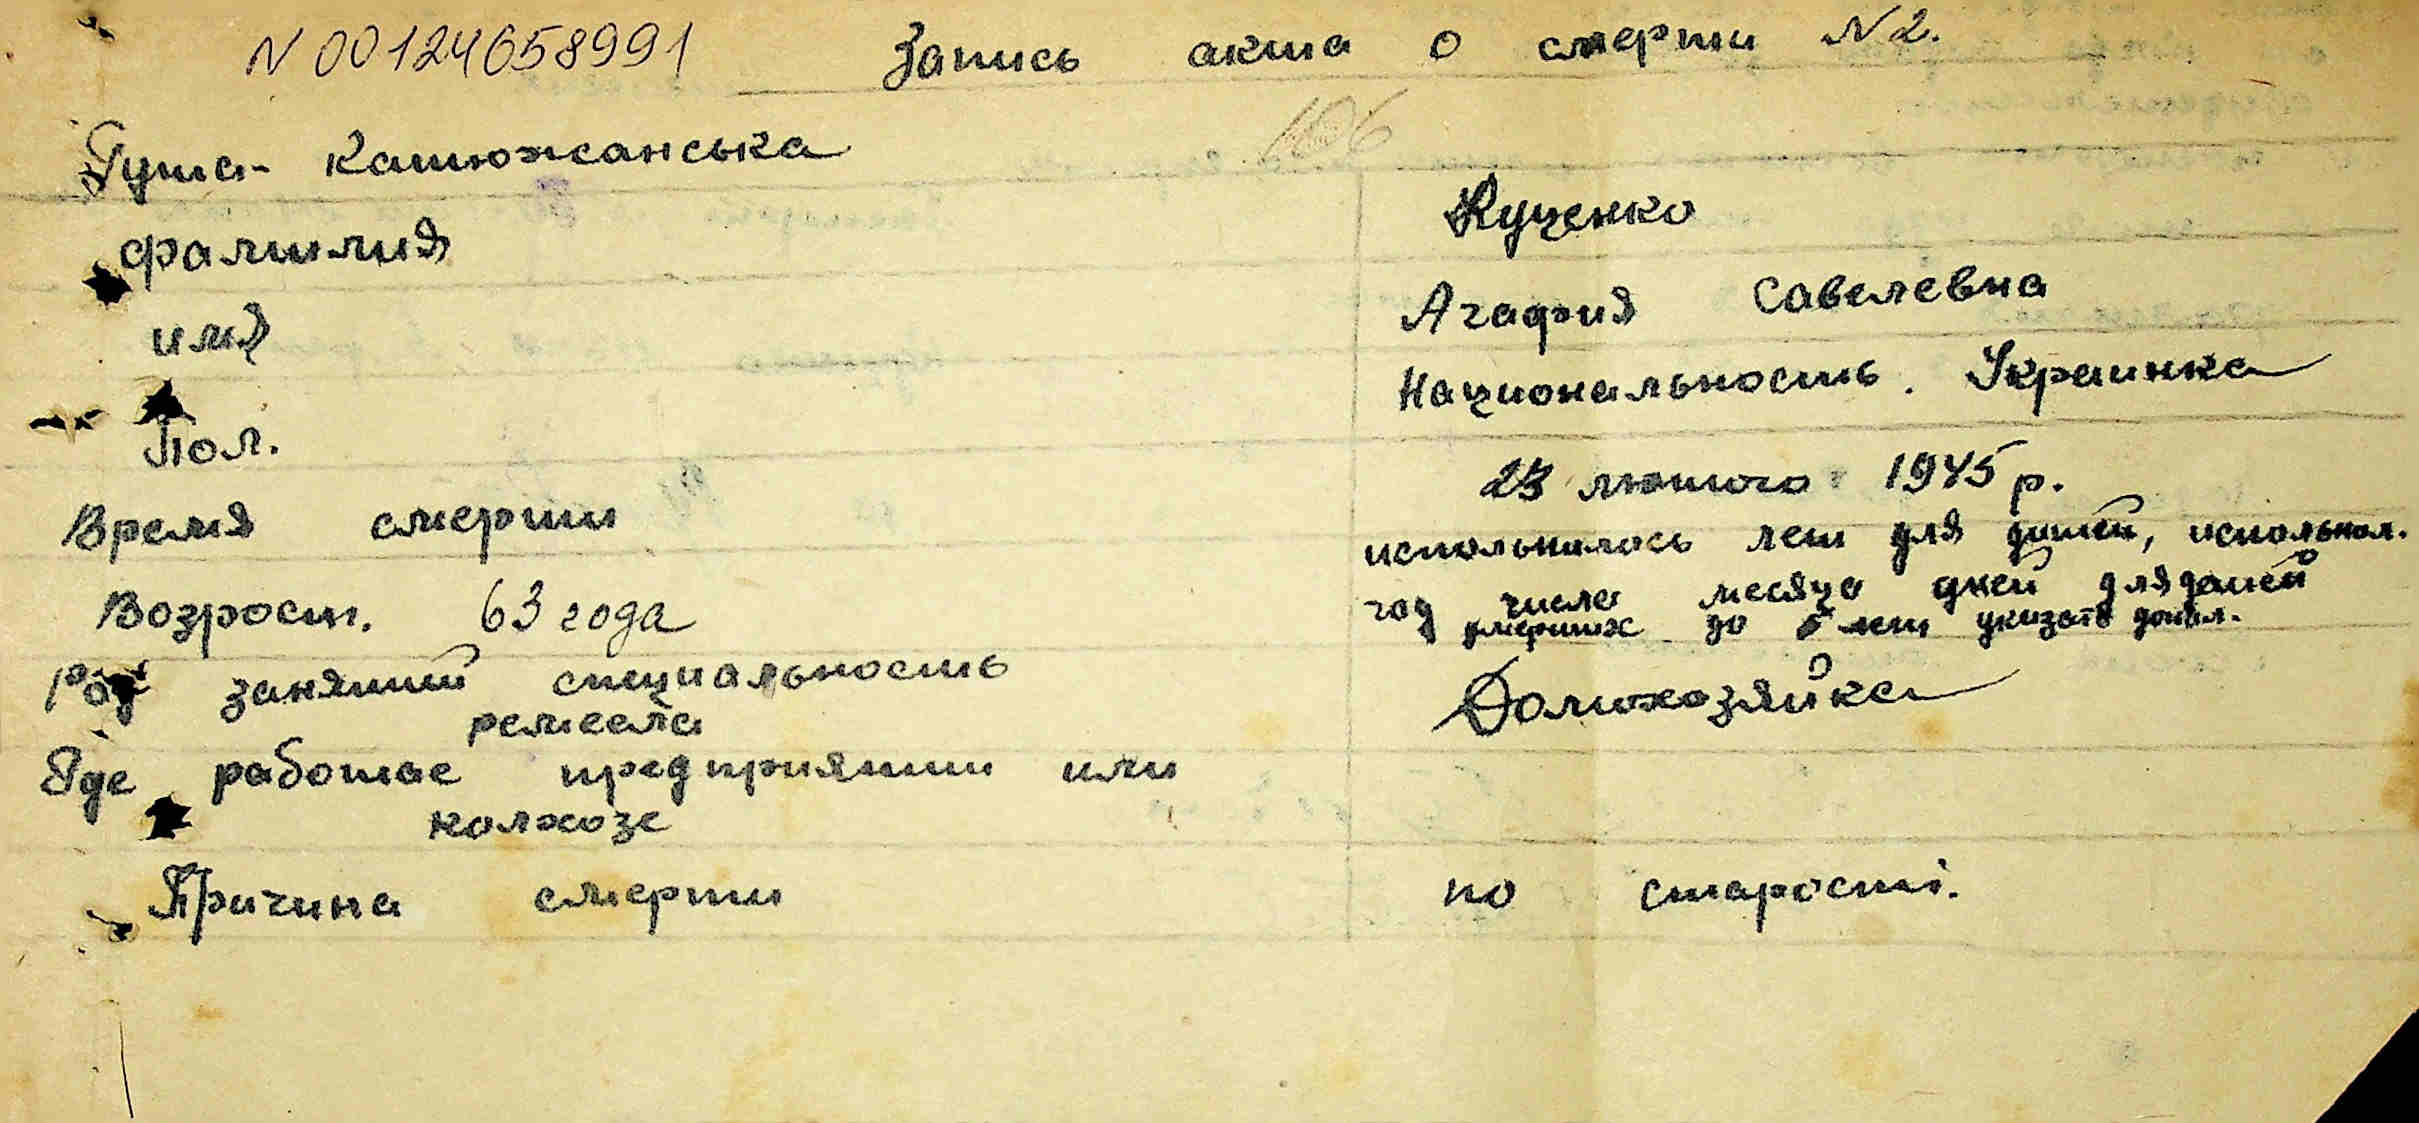 N 00124658991 Запись акта о смерти N2.
106
Гута-Катюжанська
фамилия Куценко
имя Агафия Савелевна
Пол. Национальность. Украинка
Время смерти 23 лютого 1945 р.
Возрост. 63 года испольнилось лет для дитей, испольнол.
год число месяца дней для детей
умерших до 5 лет указать допол.
Род занятий специальность Домохозяйка
ремесла
Где работае предприятии или
колхозе
Причина смерти по старости.